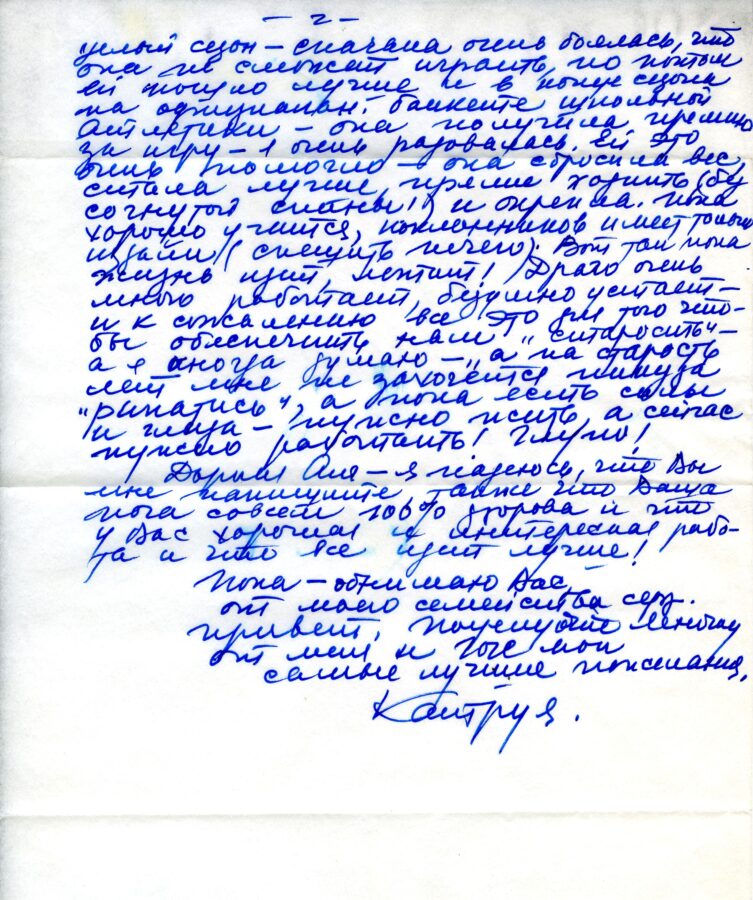 - 2 -
целый сезон – сначала очень боялась, что
она не сможет играть, но потом
ей пошло лучше и в конце сезона
на банкете школьной
атлетики – она получила премию
за игру – я очень радовалась. Ей это
очень помогло – она сбросила вес,
стала лучше, прямее ходить (без
согнутой спины!) и окрепла. Пока
хорошо учится, поклонников имеет только
издали (спешить нечего). Вот так пока
жизнь идёт, летит! Драго очень
много работает, безумно устает –
и к сожалению все это для того что-
бы обеспечить нам "старость" –
а я иногда думаю – "а на старость
лет мне не захочется никуда
"рыпатись", а пока есть силы
и глаза – нужно жить а сейчас
нужно работать! Глупо!
Дорогая Аля – я надеюсь, что Вы
мне напишите, также что Ваша
нога совсем 100% здорова и что
у Вас хорошая и интересная рабо-
та и что все идет лучше!
Пока – обнимаю Вас,
от моего семейства серд.
привет. Поцелуйте Леночку
от меня и все мои
самые лучшие пожелания,
Катруя.